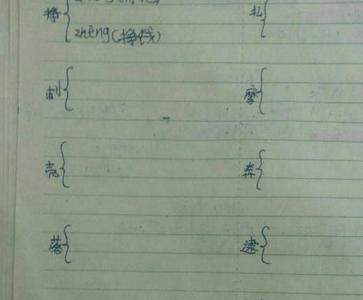 挣{ 扎{
zhèng(挣钱)
削{ 摩{
壳{ 奔{
落{ 逮{